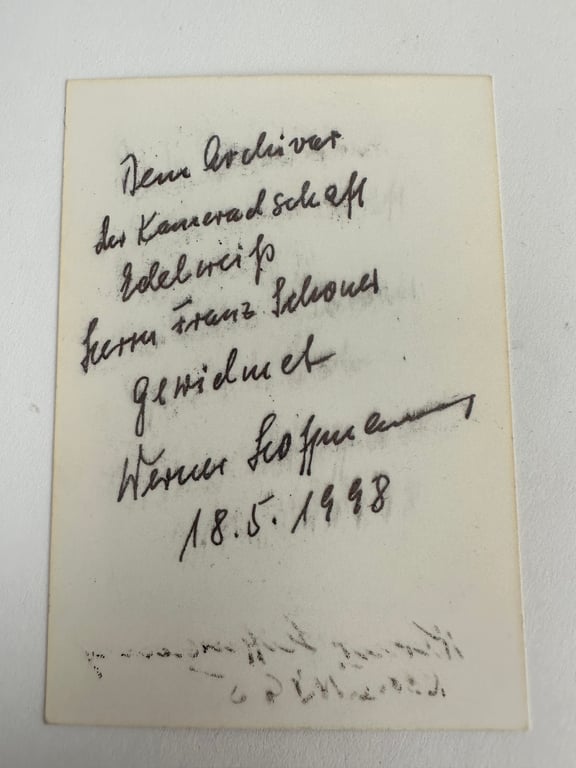 Dem Archivar
der Kameradschaft
Edelweiß
Herrn Franz Schoner
gewidmet
Werner Hoffmann
18.5.1998